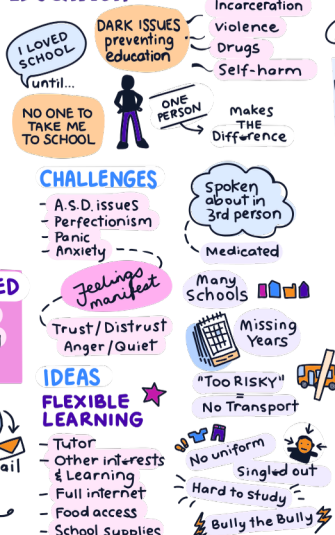 Incarceration
DARK ISSUES
preventing
education
violence
Drugs
Self-harm
I LOVED
SCHOOL
until...
NO ONE TO
TAKE ME
TO SCHOOL
ONE
PERSON
makes
THE
Difference
CHALLENGES
- A.S.D. issues
- Perfectionism
- Panic
- Anxiety
Spoken
about in
3rd person
Medicated
Feelings
manifest
Trust/Distrust
Anger/Quiet
Many
Schools
Missing
Years
"TOO RISKY"
=
No Transport
IDEAS
FLEXIBLE
LEARNING
- Tutor
- Other interests
& Learning
- Full internet
- Food access
- School supplies
No uniform
Singled out
Hard to study
Bully the Bully
ED
ail